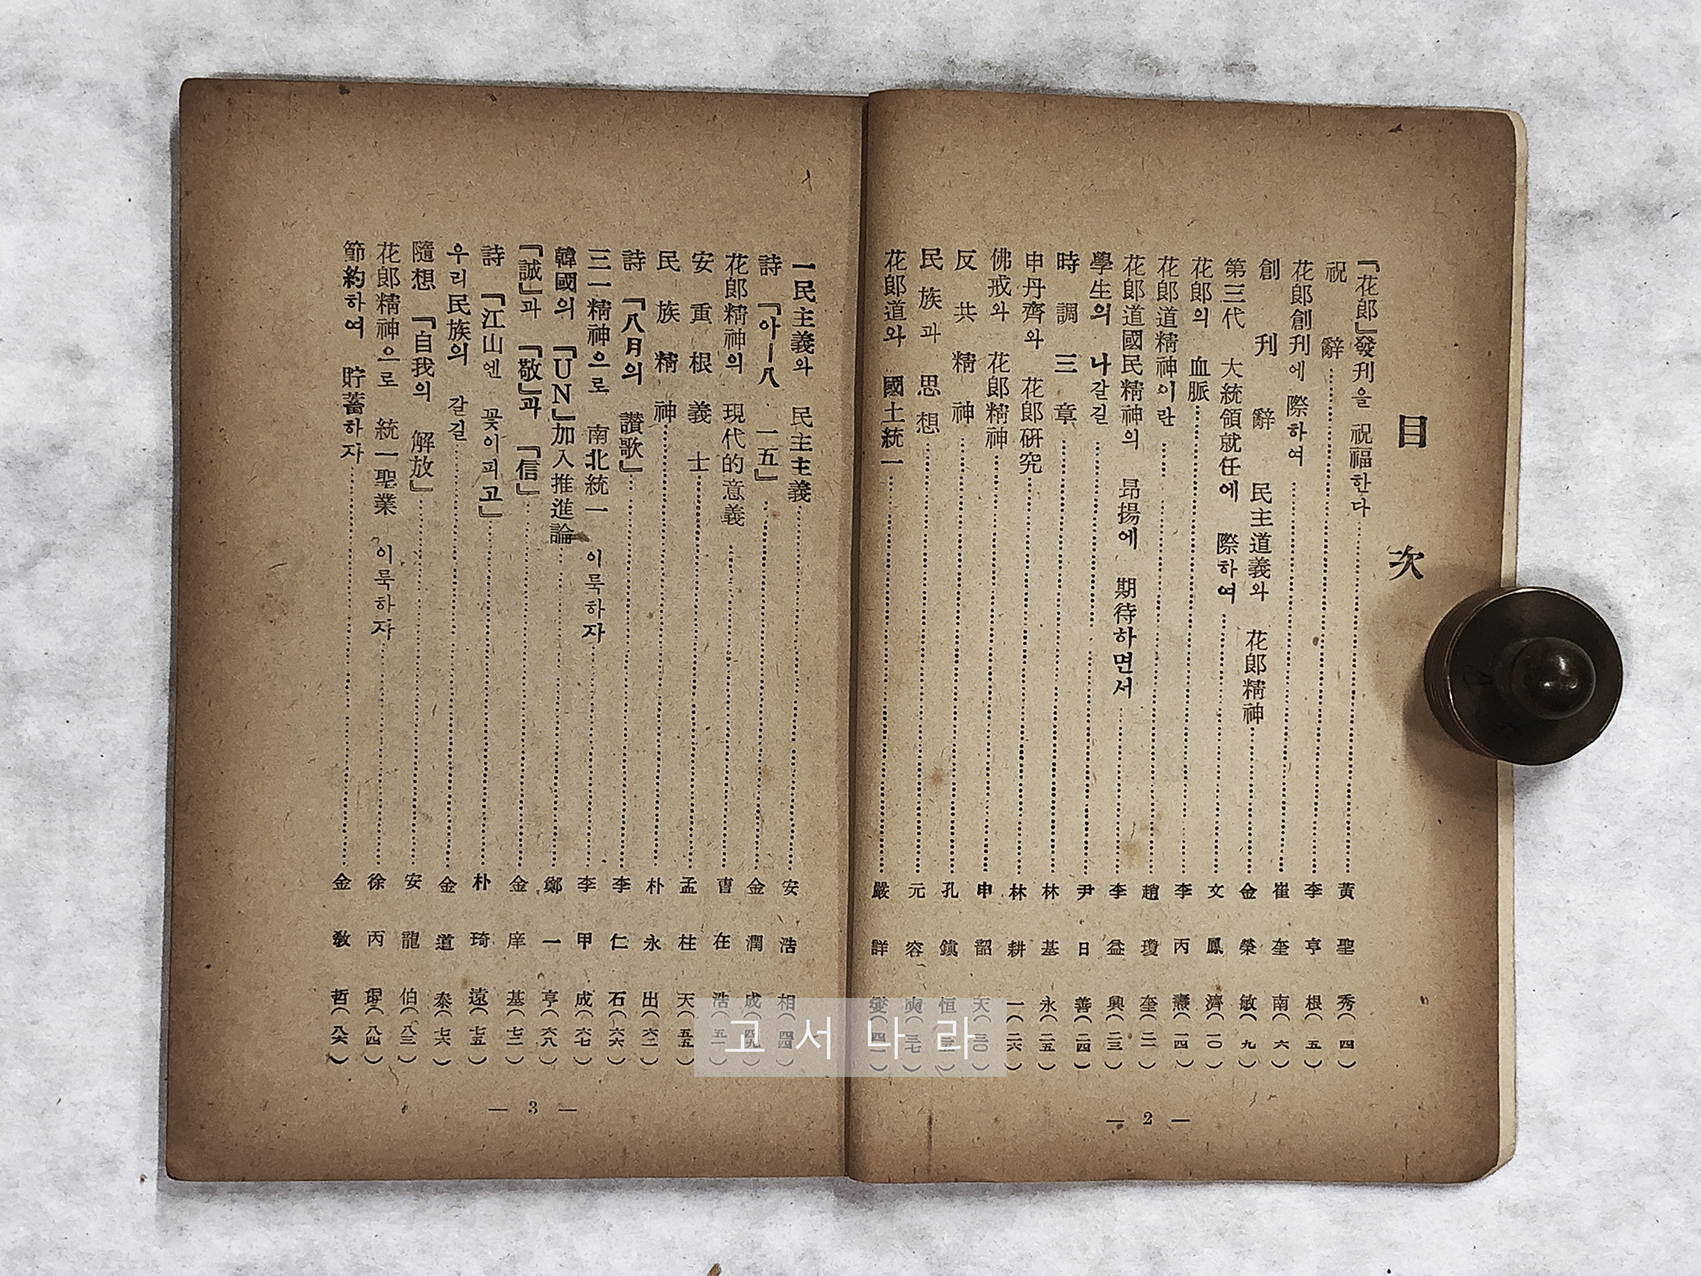 目次
『花郎』發刊을 祝福한다……黃聖秀(四)
祝辭……李亨根(五)
花郎創刊에 際하여……崔奎南(六)
創刊辭 民主道義와 花郎精神……金榮敏(九)
第三代 大統領就任에 際하여……文鳳濟(一〇)
花郎의 血脈……李丙燾(一四)
花郎道精神이란……趙瓊奎(二一)
花郎道國民精神의 昻揚에 期待하면서……李益興(二三)
學生의 나갈길……尹日善(二四)
時調三章……林基永(二五)
申丹齊와 花郎硏究……林耕一(二六)
佛戒와 花郎精神……申韶天(三〇)
反共精神……孔鎭恒
民族과 思想……元容奭(三七)
花郎道와 國土統一……嚴詳燮(四一)
— 2 —
一民主義와 民主主義……安浩相(四四)
詩 『아—八 一五』……金潤成(四九)
花郎精神의 現代的意義……曺在浩(五一)
安重根義士……孟柱天(五五)
民族精神……朴永出(六二)
詩 『八月의 讃歌』……李仁石(六六)
三一精神으로 南北統一 이룩하자……李甲成(六七)
韓國의 『UN』加入推進論……鄭一亨(六八)
『誠』과 『敬』과 『信』……金庠基(七三)
詩 『江山엔 꽃이피고』……朴琦遠(七五)
우리民族의 갈길……金道泰(七六)
隨想 『自我의 解放』……安龍伯(八三)
花郎精神으로 統一聖業 이룩하자……徐丙(八四)
節約하여 貯蓄하자……金敎哲(八六)
— 3 —
고서나라